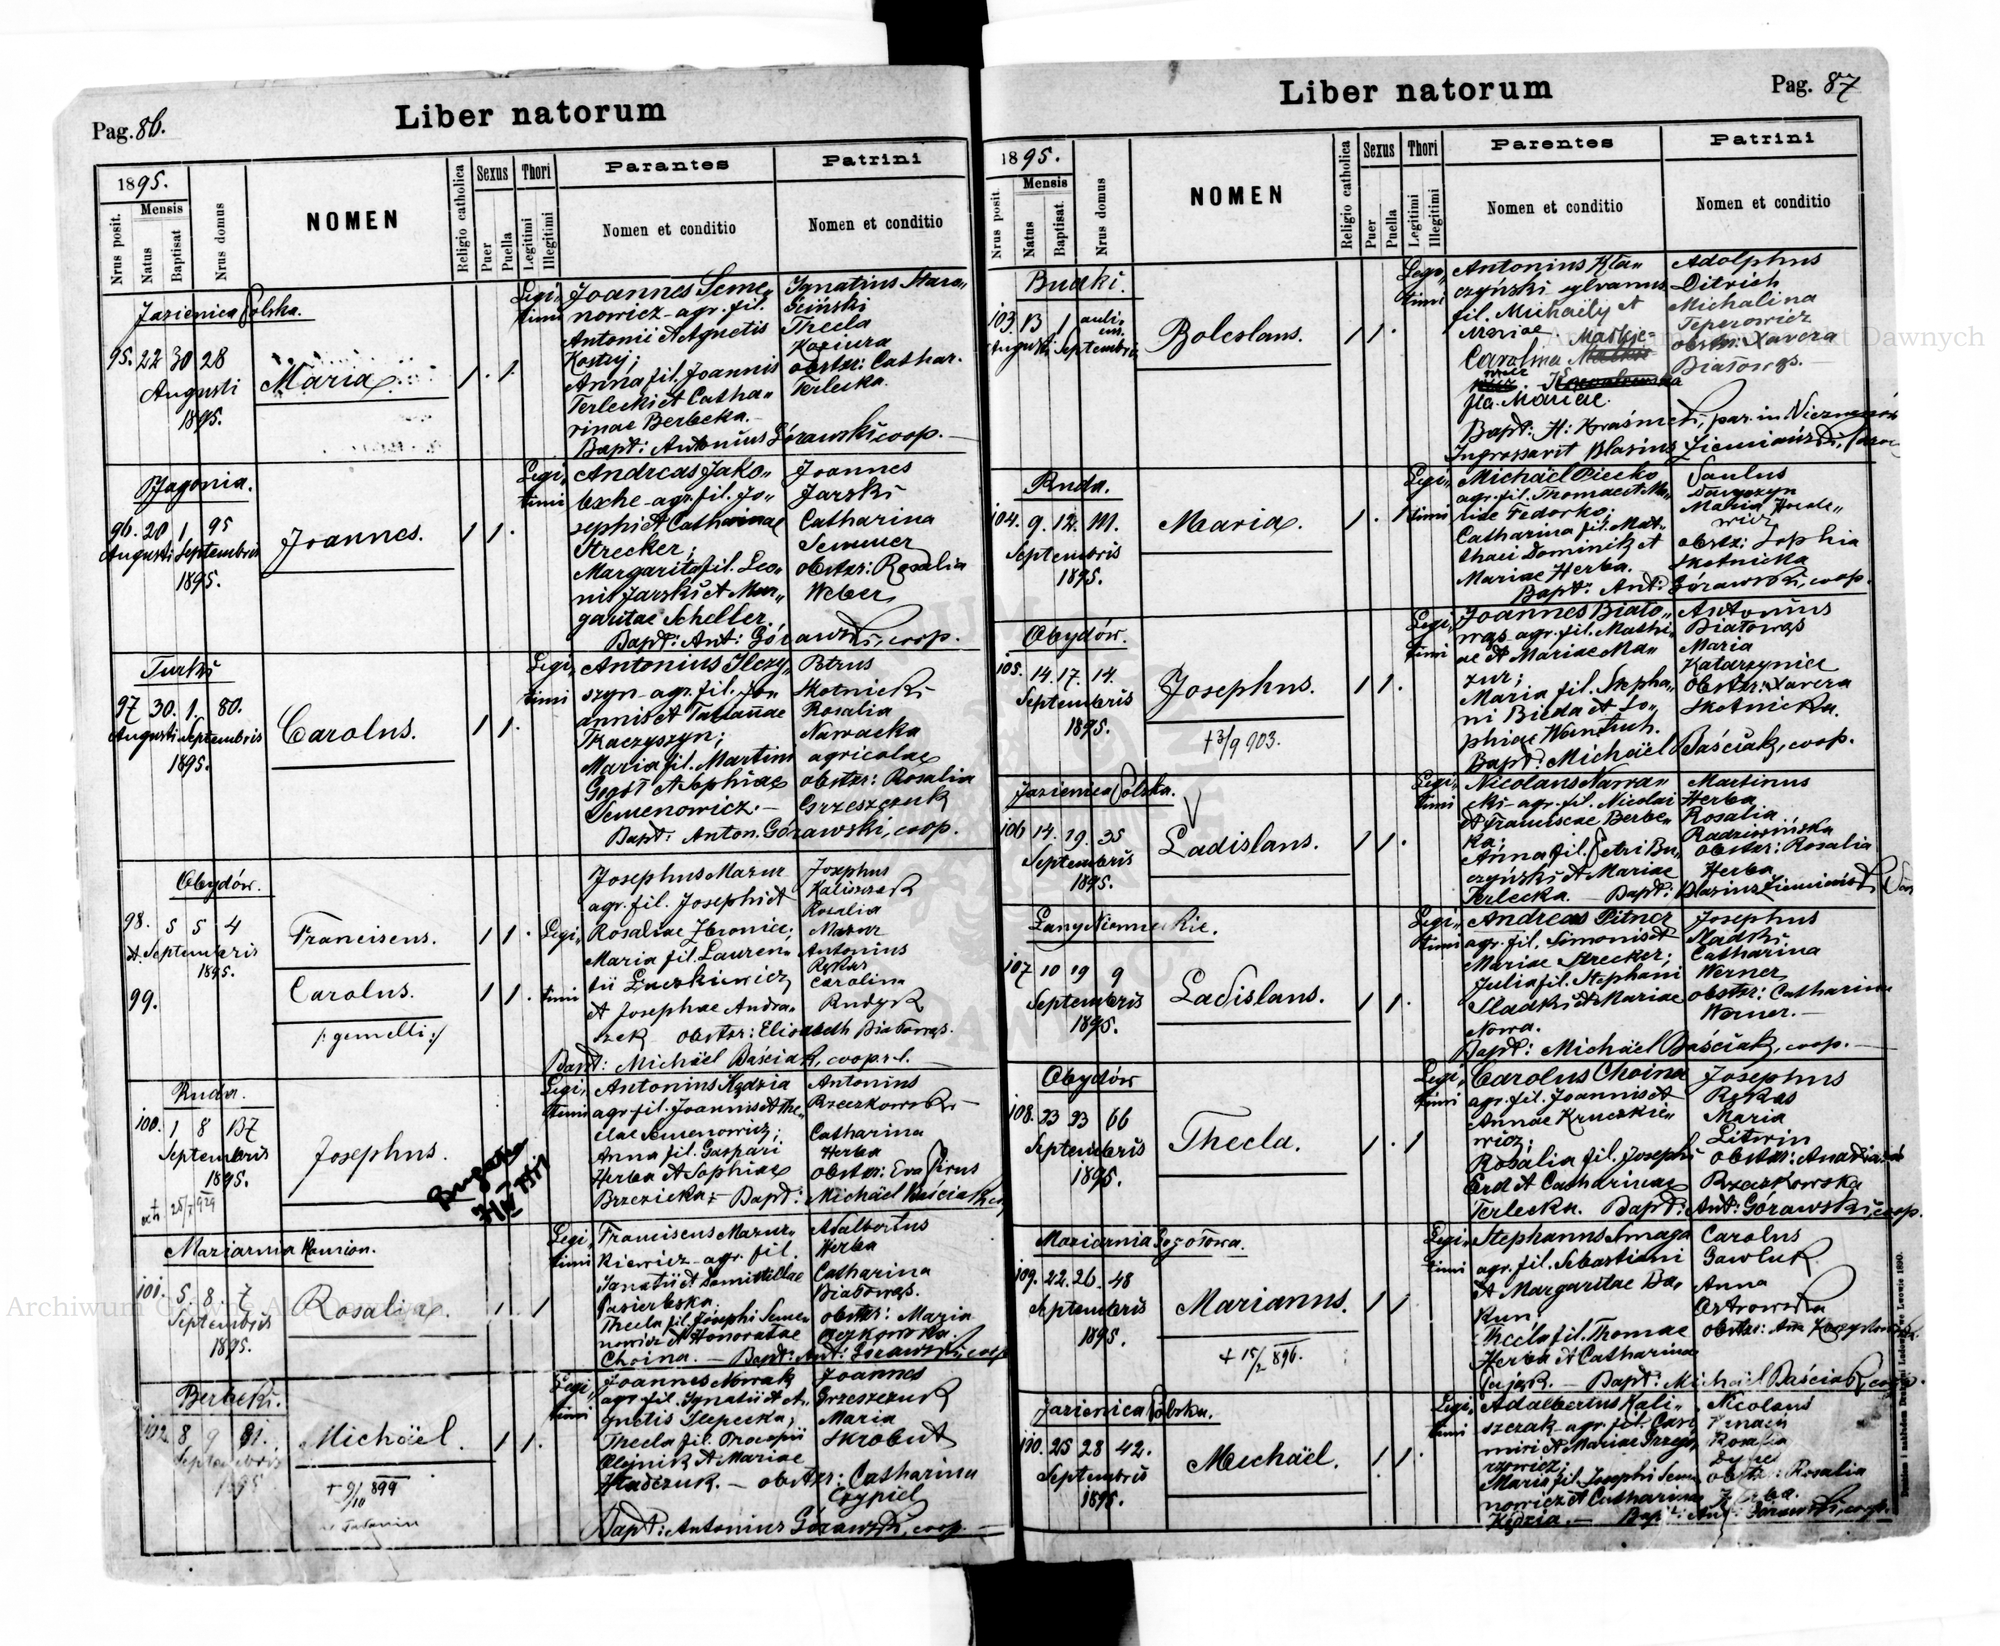 Liber natorum
Pag. 86.
1895.
Nrus posit.
Mensis
Natus
Baptisat
Nrus domus
NOMEN
Religio catholica
Sexus
Puer
Puella
Thori
Legitimi
Illegitimi
Parantes
Nomen et conditio
Patrini
Nomen et conditio
Jazienica Polska.
95. 22 30 28
Augusti
1895.
Maria
Legi-
timi
Joannes Seme-
nowicz - agr. fil.
Antonii et Agnetis
Anna fil. Joannis
Terlecki et Catha-
rinae Berbeka.
Bapt: Antonius Górawski coop.
Ignatius
Thecla
Koziura
obstr: Cathar.
Terlecka.
Jagonia.
96. 20 1 95
Augusti Septembris
1895.
Joannes.
Legi-
timi
Andreas Jako-
agr. fil. Jo-
sephi et Catharinae
Strecker;
Margarita fil. Leo-
nis Jarski et Mar-
garitae Scheller.
Bapt: Ant: Górawski, coop.
Joannes
Jarski
Catharina
obstr: Rosalia
Weber
Turki
97 30. 1. 80.
Augusti Septembris
1895.
Carolus.
Legi-
timi
Antonius Ilczy-
szyn - agr. fil. Jo-
annis et Tatiannae
Tkaczyszyn;
Maria fil. Martini
Gogół et Sophiae
Semenowicz. -
Bapt: Anton. Górawski, coop.
Petrus
Skotnicki
Rosalia
Nawacka
agricolae
obstr: Rosalia
Grzeszczuk
Obydów.
98. 5 5 4
Septembris
1895.
Franciscus.
99.
Carolus.
/: gemelli :/
Legi-
timi
Josephus Mazur
agr. fil. Josephi et
Rosaliae Zbronice;
Maria fil. Lauren-
tii Luczkiewicz
et Josephae Andra-
szek obstr: Elisabeth Białowąs.
Bapt: Michäel Baściak, coop. r. l.
Josephus
Kaliszczak
Rosalia
Mazur
Antonius
Rękas
Carolina
Rudyk
Ruda.
100. 1 8 137
Septembris
1895.
Josephus.
Legi-
timi
Antonius Kędzia
agr. fil. Joannis et The-
clae Semenowicz;
Anna fil. Gaspari
Herba et Sophiae
Brzezicka; - Bapt: Michäel Baściak coop
Antonius
Rzeczkowski -
Catharina
Herba
obstr: Eva Pirus
Maziarnia Kamion.
101. 5. 8. 7
Septembris
1895.
Rosalia.
Legi-
timi
Franciscus Mazur-
kiewicz - agr. fil.
Ignatii et Domitillae
Pasierbska
Thecla fil. Josephi Seme-
nowicz et Honoratae
Choina. - Bapt: Ant: Górawski, coop
Adalbertus
Herba
Catharina
Białowąs.
obstr: Maria
Berbeki.
102. 8 9 91.
Septembris
1895
Michäel.
+ 9/10 899
Legi-
timi
Joannes Nowak
agr. fil. Ignatii et A-
gnetis Slepecka;
Thecla fil. Procopii
Olejnik et Mariae
Hladczuk. - obstr: Catharina
Czypiel
Bapt: Antonius Górawski, coop. -
Joannes
Grzeszczuk
Maria
Skrobut
Liber natorum
Pag. 87
1895.
Nrus posit.
Mensis
Natus
Baptisat.
Nrus domus
NOMEN
Religio catholica
Sexus
Puer
Puella
Thori
Legitimi
Illegitimi
Parentes
Nomen et conditio
Patrini
Nomen et conditio
Budki.
103. 13 1
Augusti Septembris
Boleslaus.
Legi-
timi
Antonius Kła-
czyński sylvanus
fil. Michaëly et
Mariae
Carolina
fla. Mariae.
Bapt: H: Kraśnicki, par. in
Ingrossavit Blasius Ziemiański,
Adolphus
Ditrich
Michalina
Teperowicz
obstr: Xavera
Białowąs.
Ruda.
104. 9. 12. 111.
Septembris
1895.
Maria.
Legi-
timi
Michäel Piecko
agr. fil. Thomae et Ma-
riae Fedorko;
Catharina fil. Mat-
thaei Dominik et
Mariae Herba.
Bapt: Ant: Górawski, coop.
Paulus
Maria
obstr: Sophia
Skotnicka
Obydów.
105. 14. 17. 14.
Septembris
1895.
Josephus.
+ 3/9 903.
Legi-
timi
Joannes Biało-
wąs agr. fil. Mathi-
ae et Mariae Ma-
zur;
Maria fil. Stepha-
ni Bieda et So-
phiae Wantuch.
Bapt: Michäel Baściak, coop.
Antonius
Białowąs
Maria
Katarzynicz
obstr: Xavera
Skotnicka.
Jazienica Polska.
106 14. 19. 35
Septembris
1895.
Ladislaus.
Legi-
timi
Nicolaus Nawa-
cki - agr. fil. Nicolai
et Franciscae Berbe-
ka;
Anna fil. Petri Bu-
czyński et Mariae
Terlecka. Bapt: Blasius Ziemiański
Martinus
Herba
Rosalia
Radziwińska
obstr: Rosalia
Herba
Łany Niemieckie.
107 10 19 9
Septembris
1895.
Ladislaus.
Legi-
timi
Andreas Pitner
agr. fil. Simonis et
Mariae Strecker;
Julia fil. Stephani
Sladki et Mariae
Nowa.
Bapt: Michäel Baściak, coop. -
Josephus
Sladki
Catharina
Werner
obstr: Catharina
Werner. -
Obydów
108. 23 23 66
Septembris
1895.
Thecla.
Legi-
timi
Carolus Choina
agr. fil. Joannis et
Annae Kruczkie-
wicz;
Rosalia fil. Josephi
Erd et Catharinae
Terlecka. Bapt: Ant: Górawski, coop.
Josephus
Rękas
Maria
Litwin
obstr: Anastasia
Rzeczkowska
Maziarnia Gogołowa.
109. 22. 26. 48
Septembris
1895.
Marianus.
+ 15/2 896.
Legi-
timi
Stephanus Smaga
agr. fil. Sebastiani
et Margaritae Ba-
kun;
Thecla fil. Thomae
Herba et Catharinae
Pająk. - Bapt: Michäel Baściak, coop.
Carolus
Gawluk
Anna
Ostrowska
Jazienica Polska.
110. 25 28 42.
Septembris
1895.
Michäel.
Legi-
timi
Adalbertus Kali-
szczak - agr. fil. Casi-
miri et Mariae Grzego-
rzowicz;
Maria fil. Josephi Seme-
nowicz et Catharinae
Kędzia. - Bapt: Ant: Górawski, coop.
Nicolaus
Rosalia
obstr: Rosalia
Herba.